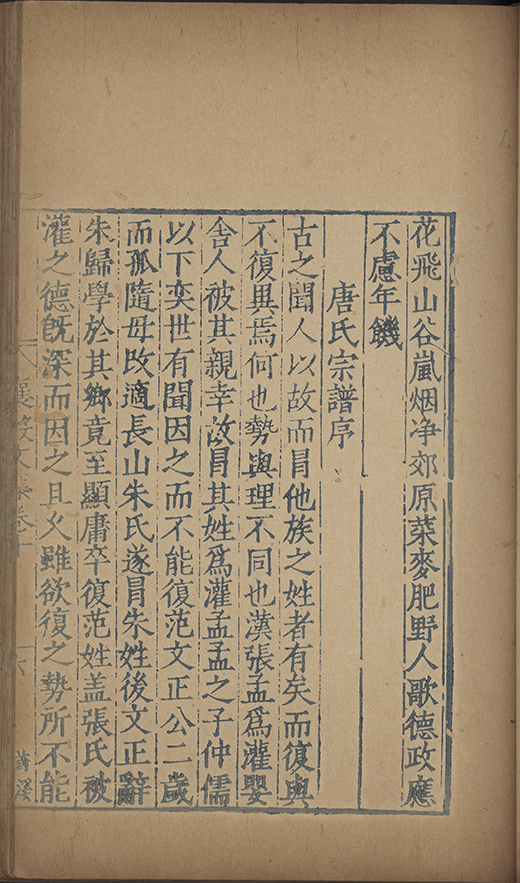 花飛山谷嵐烟净郊原菜麥肥野人歌德政應
不慮年饑
唐氏宗譜序
古之聞人以故而冒他族之姓者有矣而復與
不復異焉何也勢與理不同也漢張孟爲灌嬰
舎人被其親幸故冒其姓爲灌孟孟之子仲儒
以下奕世有聞因之而不能復范文正公二歲
而孤隨母改適長山朱氏遂冒朱姓後文正辭
朱歸學於其鄉竟至顯庸卒復范姓盖張氏被
灌之德旣深而因之且乆雖欲復之勢所不能
文集卷十
六